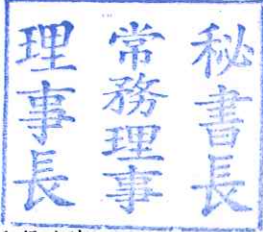 秘書長
常務理事
理事長